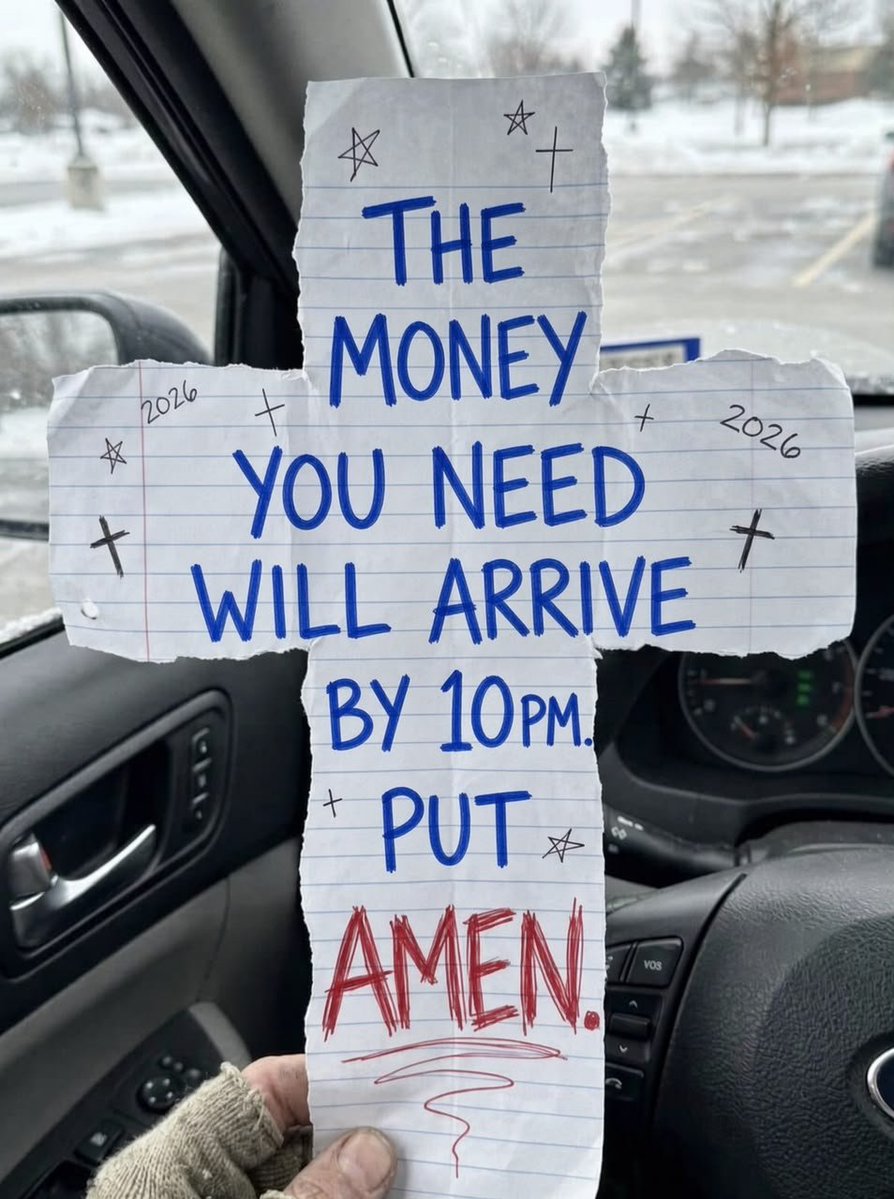 THE
MONEY
2026
2026
YOU NEED
WILL ARRIVE
BY 10PM.
PUT
AMEN.
VOS